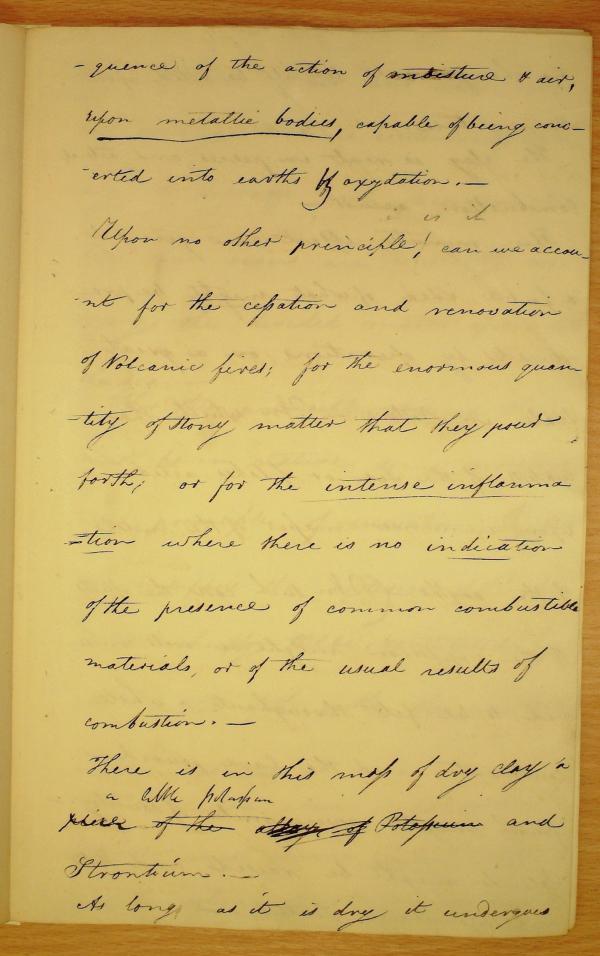 - quence of the action of moisture & air,
upon metallic bodies, capable of being conv-
-erted into earths by oxydation. —
is it
Upon no other principle, can we accou-
-nt for the cessation and renovation
of Volcanic fires; for the enormous quan-
-tity of stony matter that they pour
forth; or for the intense inflamma
=tion where there is no indication
of the presence of common combustible
materials, or of the usual results of
combustion. —
There is in this mass of dry clay a
a little potassium
piece of the alloy of Potassium and
Strontium. —
As long as it is dry it undergoes